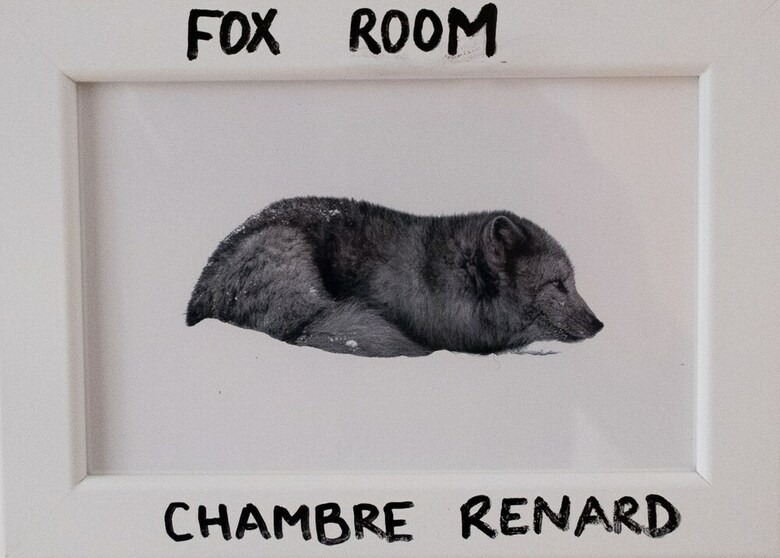 FOX ROOM
CHAMBRE RENARD